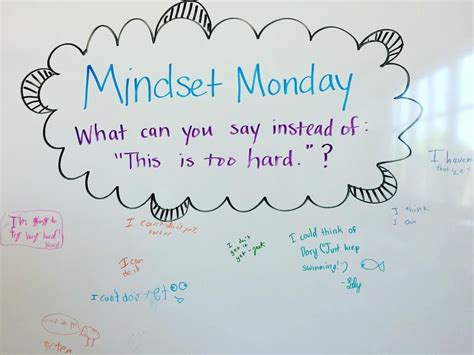 Mindset Monday
What can you say instead of:
"This is too hard."?
I haven
I think
I can
I'm going to
try very hard!
I can't do it yet.
I can
do it
I could think of
Dory (Just keep
swimming!)
Lily
I can't do it yet